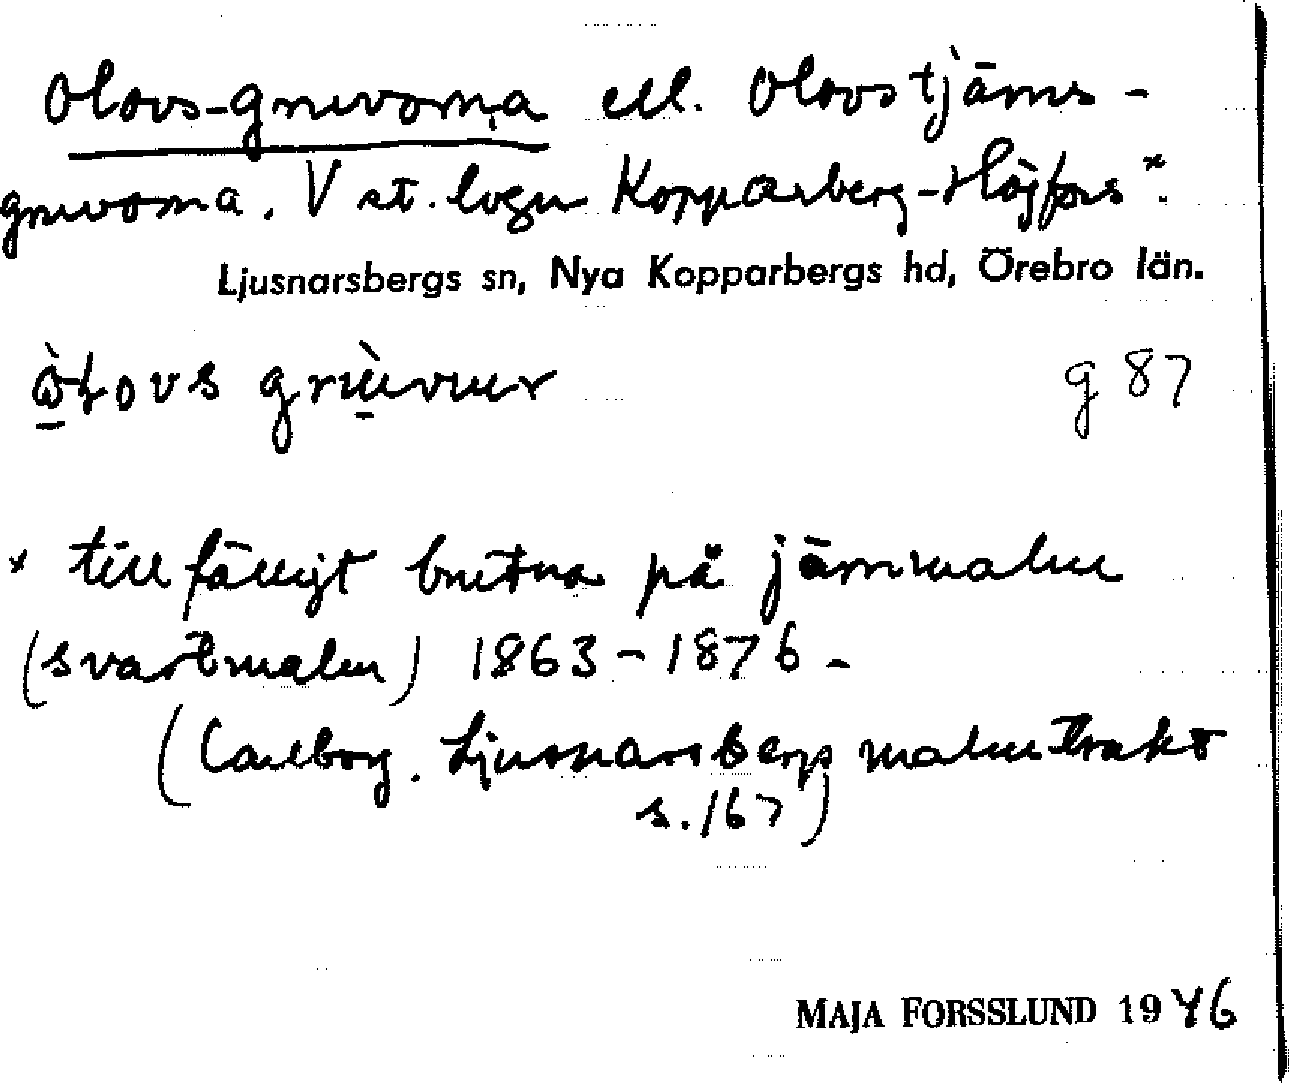 Olovs-gruvorna ell. Olovstjärns-
gruvorna. V st. vägen Kopparberg-Högfors x.
Ljusnarsbergs sn, Nya Kopparbergs hd, Örebro län.
òłovs grùvur g 87
x tillfälligt brutna på järnmalm
(svartmalm) 1863-1876-
(Carlborg. Ljusnarsbergs malmtrakt
s. 167)
MAJA FORSSLUND 1946